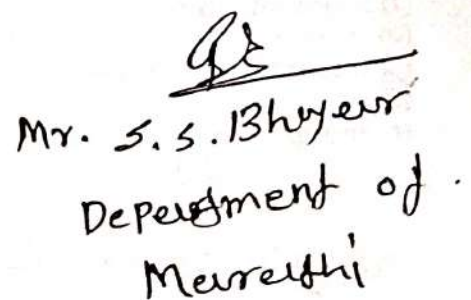 Mr. S.S. Bhuyar
Department of
Marathi